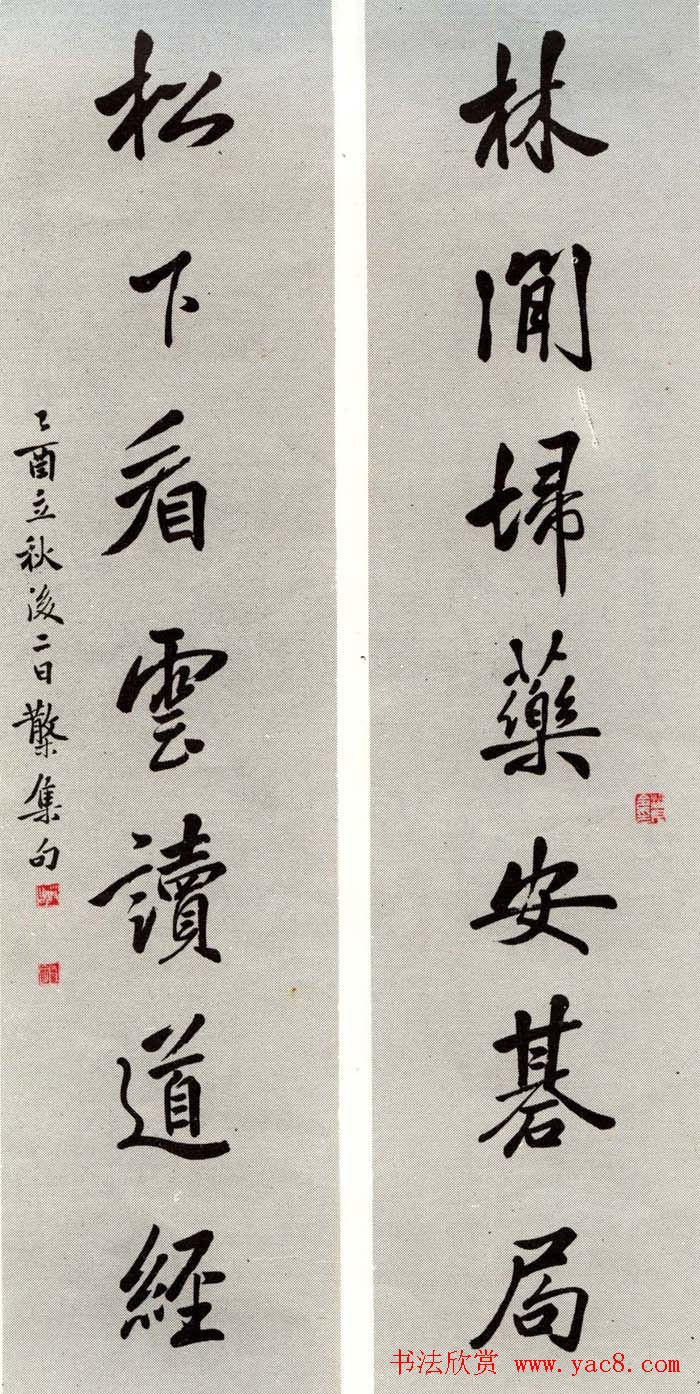 林間埽藥安碁局
松下看雲讀道經
乙酉立秋後二日 集句
书法欣赏 www.yac8.com